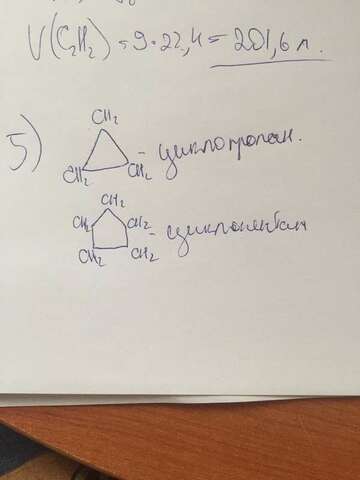 V(C₂H₂) = 9·22,4 = 201,6 л.
5)
CH₂
CH₂ CH₂ - циклопропан.
CH₂
CH₂ CH₂
CH₂ CH₂ - циклопентан